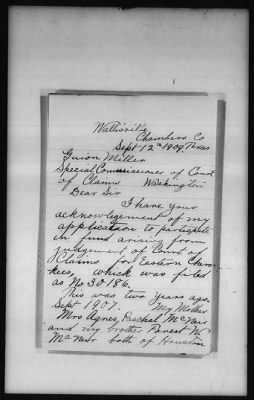 Wallisville
Chambers Co
Sept 12th 1909 Texas
Guion Miller
Special Commissioner of Court
of Claims Washington
Dear Sir
I have your
acknowlegement of my
application to participate
in fund arising from
judgement of Court of
Claims for Eastern Chero-
kees, which was filed
as No 30186.
This was two years ago.
Sept 1907. My Mother
Mrs Agnes, Paschal McNeir
and my brother Forest W.
McNeir both of Houston